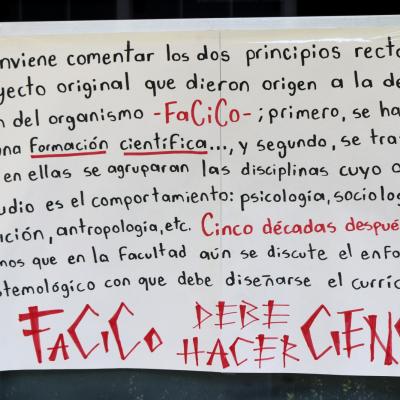 nviene comentar los dos principios recto
yecto original que dieron origen a la de
n del organismo -FaCiCo-; primero, se ha
una formación científica..., y segundo, se tra
en ellas se agruparan las disciplinas cuyo o
udio es el comportamiento: psicología, sociolog
ación, antropología, etc. Cinco décadas despué
mos que en la Facultad aún se discute el enfo
temológico con que debe diseñarse el curríc
FaCiCo DEBE HACER CIENC